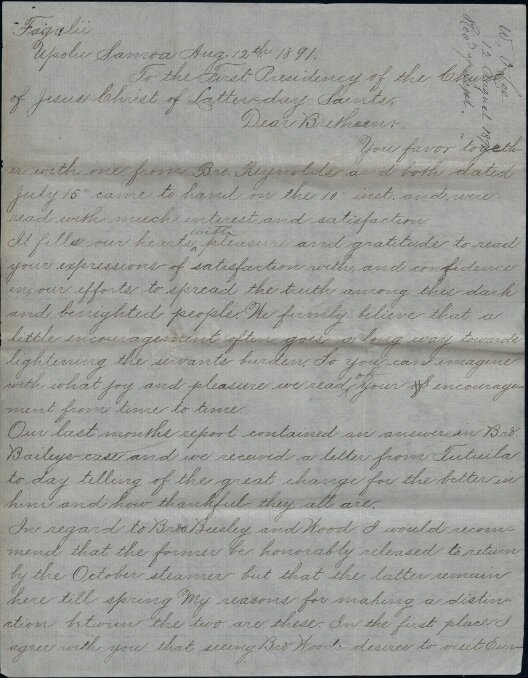 Fagalii
Upolu Samoa Aug. 12th 1891.
To the First Presidency of the Church
of Jesus Christ of Latter-day Saints,
Dear Brethren:
You favor togeth-
er with one from Bro. Reynolds and both dated
July 15" came to hand on the 10" inst. and were
read with much interest and satisfaction.
It fills our hearts with pleasure and gratitude to read
your expressions of satisfaction with, and confidence
in, our efforts to spread the truth among this dark
and benighted people. We firmly believe that a
little encouragement often goes a long way towards
lightening the servants burden. So you can imagine
with what joy and pleasure we read your encourage-
ment from time to time.
Our last months report contained an answer in Bro.
Baileys case and we received a letter from Tutuila
to day telling of the great change for the better in
him and how thankful they all are.
In regard to Bros Beesley and Wood I would recom-
mend that the former be honorably released to return
by the October steamer but that the latter remain
here till spring My reasons for making a distin-
ction between the two are these. In the first place I
agree with you that seeing Bro Wood desires to visit Eur-
W.
12 August 1891
Recd Sept.